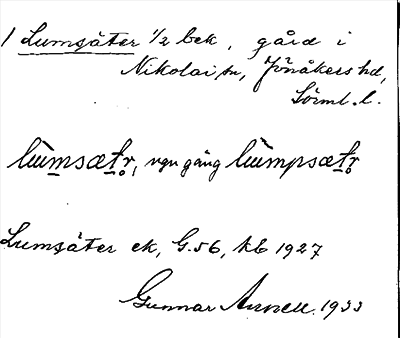 1 Lumsäter 1/2 bek, gård i
Nikolai sn, Jönåkers hd,
Sörml. l.
lùmsætr, ngn gång lùmpsætr
Lumsäter ek, G. 56, kb 1927
Gunnar Arnell. 1933